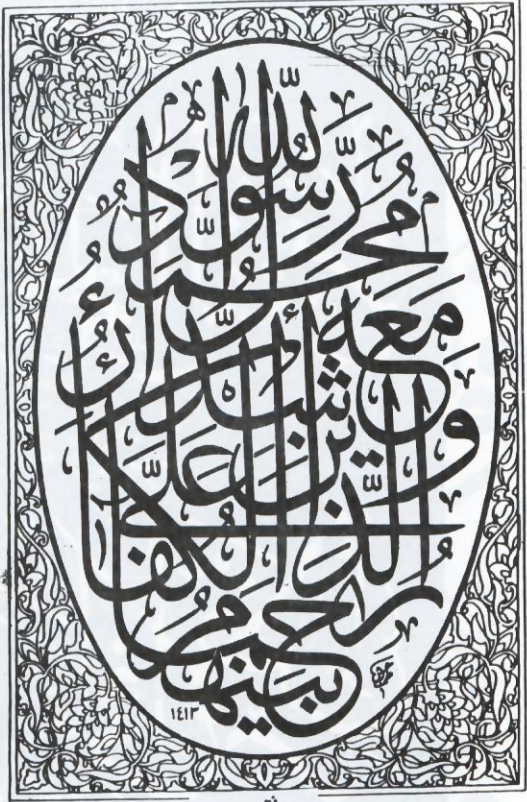 محمد رسول الله
والذين معه
أشداء على الكفار
رحماء بينهم
١٤١٣